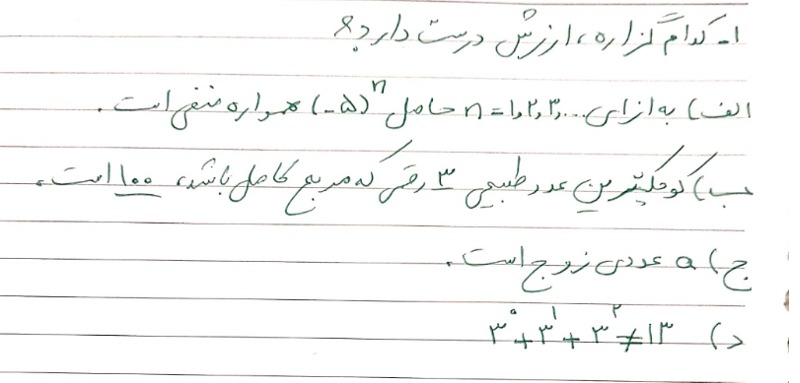 ۱- کدام گزاره، ارزش درست دارد؟
الف) به ازای n=۱,۲,۳,... حاصل (-۵)^n همواره منفی است.
ب) کوچکترین عدد طبیعی ۳ رقمی که مربع کامل باشد، ۱۰۰ است.
ج) a عددی زوج است.
د) ۳^۰+۳^۱+۳^۲≠۱۳